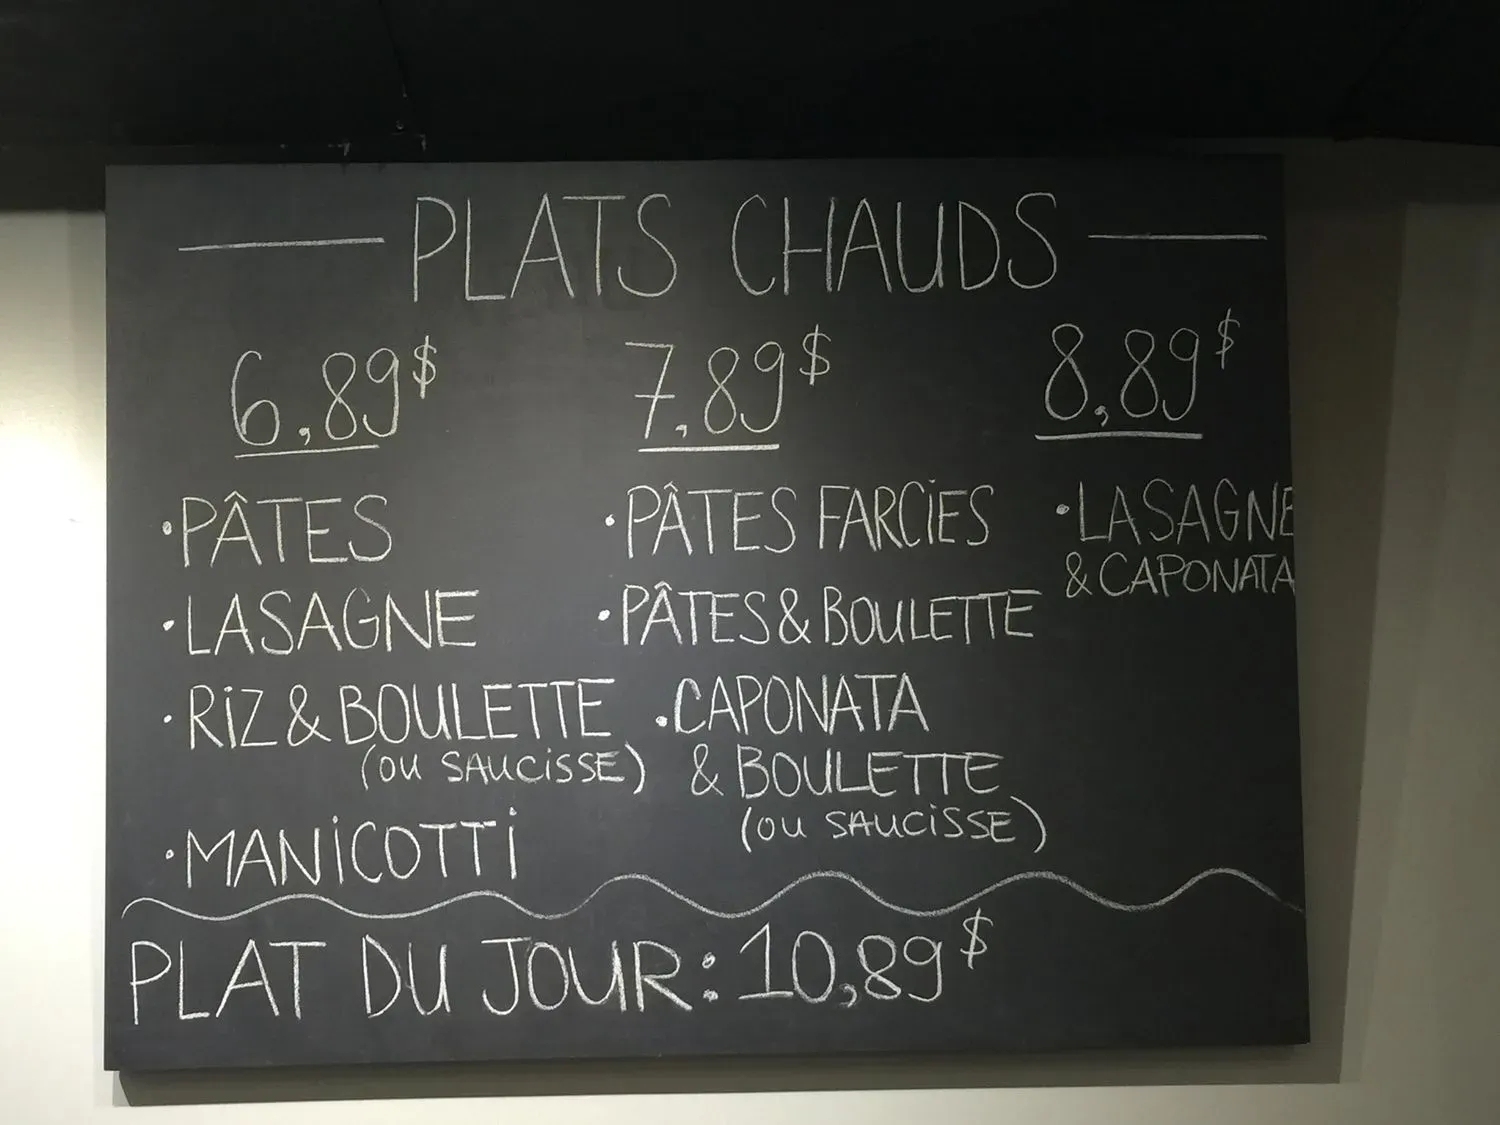 PLATS CHAUDS
6,89$
• PÂTES
• LASAGNE
• RiZ & BOULETTE
(ou SAUCiSSE)
• MANiCOTTi
7,89$
• PÂTES FARCiES
• PÂTES & BOULETTE
• CAPONATA
& BOULETTE
(ou SAUCiSSE)
8,89$
• LASAGNE
& CAPONATA
PLAT DU JOUR: 10,89$